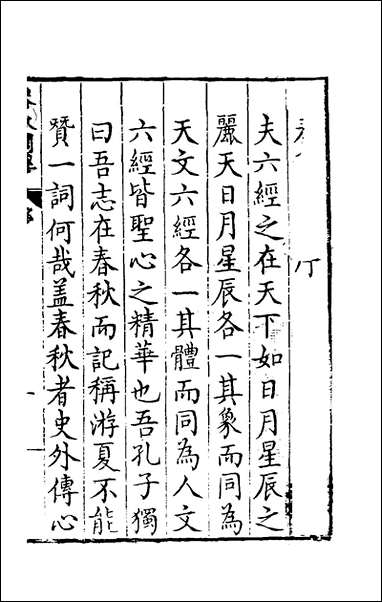 夫六經之在天下如日月星辰之
麗天日月星辰各一其象而同為
天文六經各一其體而同為人文
六經皆聖心之精華也吾孔子獨
曰吾志在春秋而記稱游夏不能
贊一詞何哉盖春秋者史外傳心